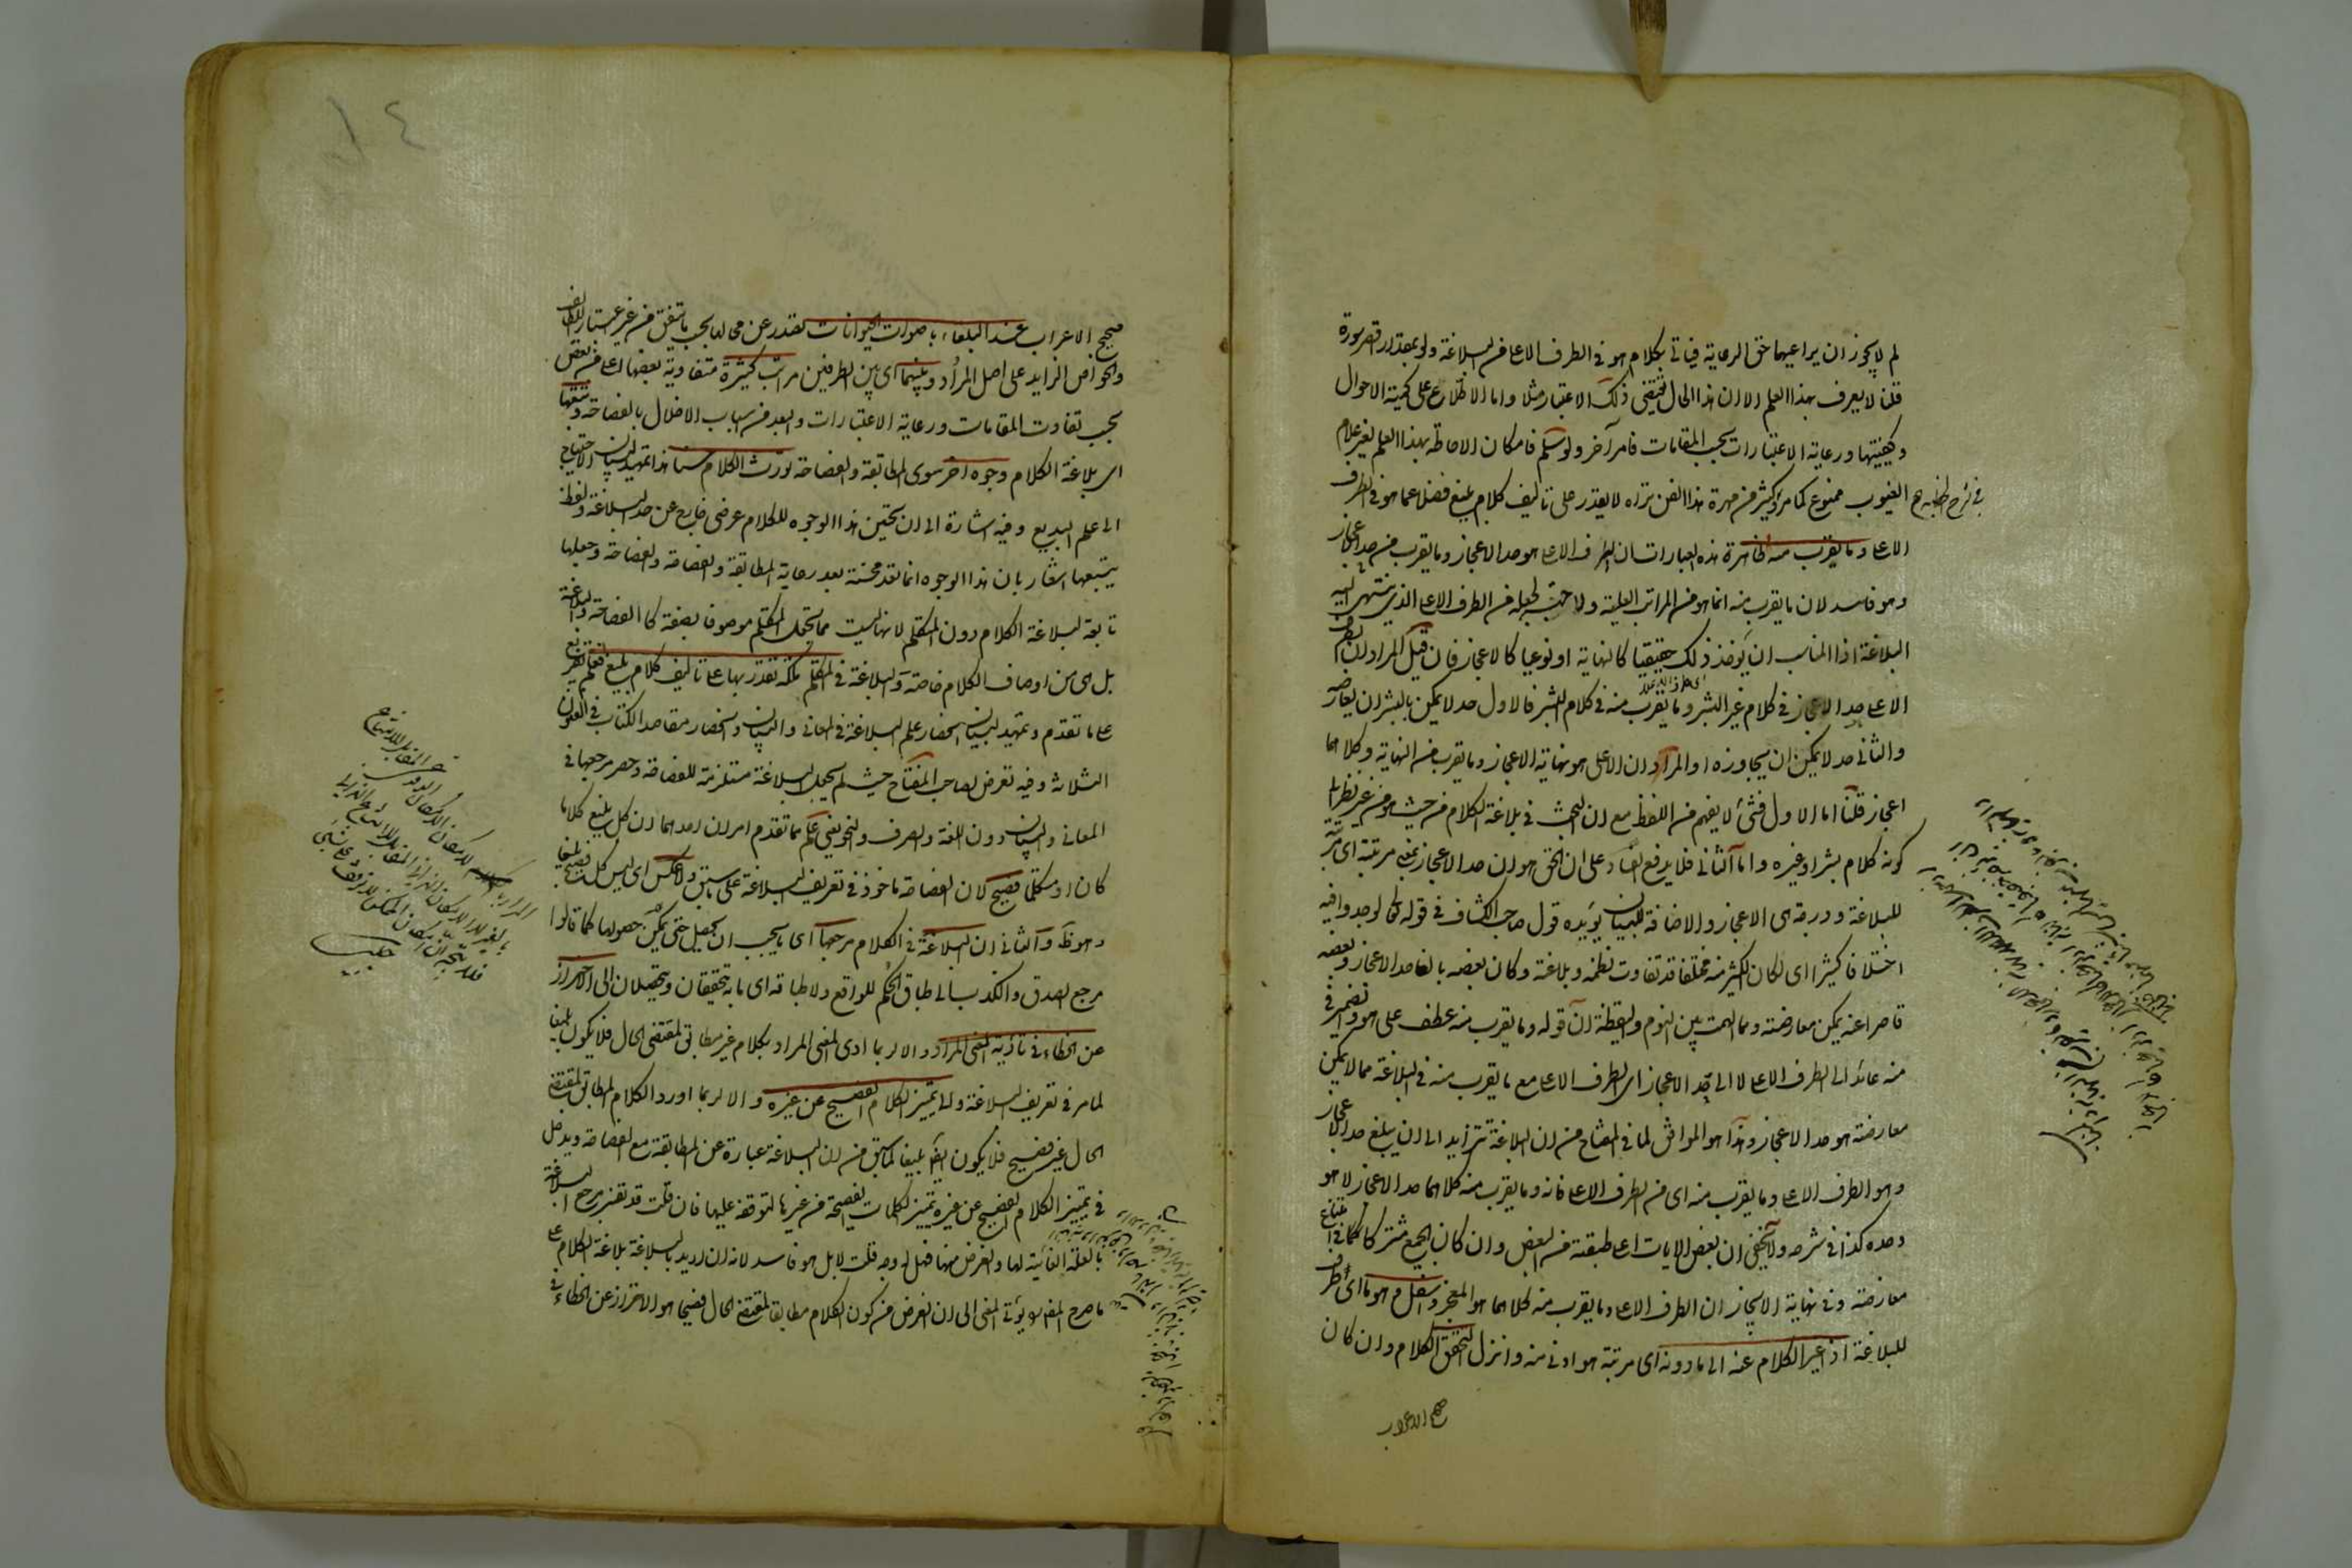 لم لا يجوز ان يراعيها حق الرعاية فياتي بكلام هو في الطرف الاعلى من البلاغة ولو بمقدار اقصر سورة
قلت لا يعرف بهذا العلم الا ان هذا الحال يقتضي ذلك الاعتبار مثلا واما الاطلاع على كمية الاحوال
وكيفيتها ورعاية الاعتبارات بحسب المقامات فامر آخر ولو سلم فامكان الاحاطة بهذا العلم لغير علام
الغيوب ممنوع كما مر وكثير من مهرة هذا الفن تراه لا يقدر على تاليف كلام بليغ فضلا عما هو في الطرف
الاعلى وما يقرب منه الظاهرة هذه العبارات ان الطرف الاعلى هو حد الاعجاز وما يقرب من حد الاعجاز
وهو فاسد لان ما يقرب منه انما هو من المراتب العلية ولا جهة لجعله من الطرف الاعلى الذي ينتهي اليه
البلاغة اذ المناسب ان يؤخذ ذلك حقيقيا كالنهاية او نوعيا كالاعجاز فان قيل المراد ان الطرف
الاعلى حد الاعجاز في كلام غير البشر وما يقرب منه في كلام البشر فالاول حد لا يمكن للبشر ان يعارضه
والثاني حد لا يمكن ان يجاوزه او المراد ان الاعلى هو نهاية الاعجاز وما يقرب من النهاية وكلاهما
اعجاز قلنا اما الاول فشئ لا يفهم من اللفظ مع ان البحث في بلاغة الكلام من حيث هو من غير نظر الى
كونه كلام بشر او غيره واما الثاني فلا يدفع الفساد على ان الحق هو ان حد الاعجاز بمعنى مرتبته اى مرتبة
للبلاغة ودرجة هى الاعجاز والاضافة للبيان يؤيده قول صاحب الكشاف في قوله تعالى لوجدوا فيه
اختلافا كثيرا اى لكان الكثير منه مختلفا قد تفاوت نظمه وبلاغته وكان بعضه بالغا حد الاعجاز وبعضه
قاصرا عنه يمكن معارضته ومما الهمت بين النوم واليقظة ان قوله وما يقرب منه عطف على هو والضمير في
منه عائد الى الطرف الاعلى لا الى حد الاعجاز اى الطرف الاعلى مع ما يقرب منه في البلاغة مما لا يمكن
معارضته هو حد الاعجاز وهذا هو الموافق لما في المفتاح من ان البلاغة تتزايد الى ان يبلغ حد الاعجاز
وهو الطرف الاعلى وما يقرب منه اى من الطرف الاعلى فانه وما يقرب منه كلاهما حد الاعجاز لا هو
وحده كذا في شرحه ولا يخفى ان بعض الايات اعلى طبقة من البعض وان كان الجميع مشتركا في امتناع
معارضته وفي نهاية الايجاز ان الطرف الاعلى وما يقرب منه كلاهما هو المعجز واسفل وهو ما اى طرف
للبلاغة اذا غير الكلام عنه الى ما دونه اى مرتبة هو ادنى منه وانزل التحق الكلام وان كان
صحيح الاعراب
صحيح الاعراب عند البلغاء باصوات الحيوانات تصدر عن محالها بحسب ما يتفق من غير اعتبار اللطائف
والخواص الزايد على اصل المراد وبينهما اى بين الطرفين مراتب كثيرة متفاوتة بعضها اعلى من بعض
بحسب تفاوت المقامات ورعاية الاعتبارات والبعد من اسباب الاخلال بالفصاحة وتتبعها
اى بلاغة الكلام وجوه اخر سوى المطابقة والفصاحة تورث الكلام حسنا هذا تمهيد لبيان الاحتياج
الى علم البديع وفيه اشارة الى ان تحسين هذا الوجوه للكلام عرضي خارج عن حد البلاغة ولفظ
يتبعها اشعار بان هذا الوجوه انما تعد محسنة بعد رعاية المطابقة والفصاحة وجعلها
تابعة لبلاغة الكلام دون المتكلم لانها ليست مما تجعل المتكلم موصوفا بصفة كالفصاحة والبلاغة
بل هى من اوصاف الكلام خاصة والبلاغة في المتكلم ملكة يقتدر بها على تاليف كلام بليغ فعلم تفريع
على ما تقدم وتمهيد لبيان انحصار علم البلاغة في المعاني والبيان وانحصار مقاصد الكتاب في الفنون
الثلاثة وفيه تعرض لصاحب المفتاح حيث لم يجعل البلاغة مستلزمة للفصاحة وحصر مرجعها في
المعاني والبيان دون اللغة والصرف والنحو يعني علم مما تقدم امران احدهما ان كل بليغ كلاما
كان او متكلما فصيح لان الفصاحة ماخوذة في تعريف البلاغة على ما سبق ولا عكس اى ليس كل فصيح بليغا
وهو ظ والثاني ان البلاغة في الكلام مرجعها اى ما يجب ان يحصل حتى يمكن حصولها كما قالوا
مرجع الصدق والكذب الى طباق الحكم للواقع ولا طباقه اى ما به يتحققان ويتحصلان الى الاحتراز
عن الخطاء في تأدية المعنى المراد والا لربما ادى المعنى المراد بكلام غير مطابق لمقتضى الحال فلا يكون بليغا
لما مر في تعريف البلاغة والى تمييز الكلام الفصيح عن غيره والا لربما اورد الكلام المطابق لمقتضى
الحال غير فصيح فلا يكون ايضا بليغا لما سبق من ان البلاغة عبارة عن المطابقة مع الفصاحة ويدخل
في تمييز الكلام الفصيح عن غيره تمييز الكلمات الفصيحة من غيرها لتوقفه عليها فان قلت قد تفسر مرجع البلاغة
بالعلة الغائية لها والغرض منها فهل له وجه قلت لا بل هو فاسد لانه ان اريد بالبلاغة بلاغة الكلام على
ما صرح المص به يؤتى المعنى الى ان الغرض من كون الكلام مطابقا لمقتضى الحال فصيحا هو الاحتراز عن الخطاء في